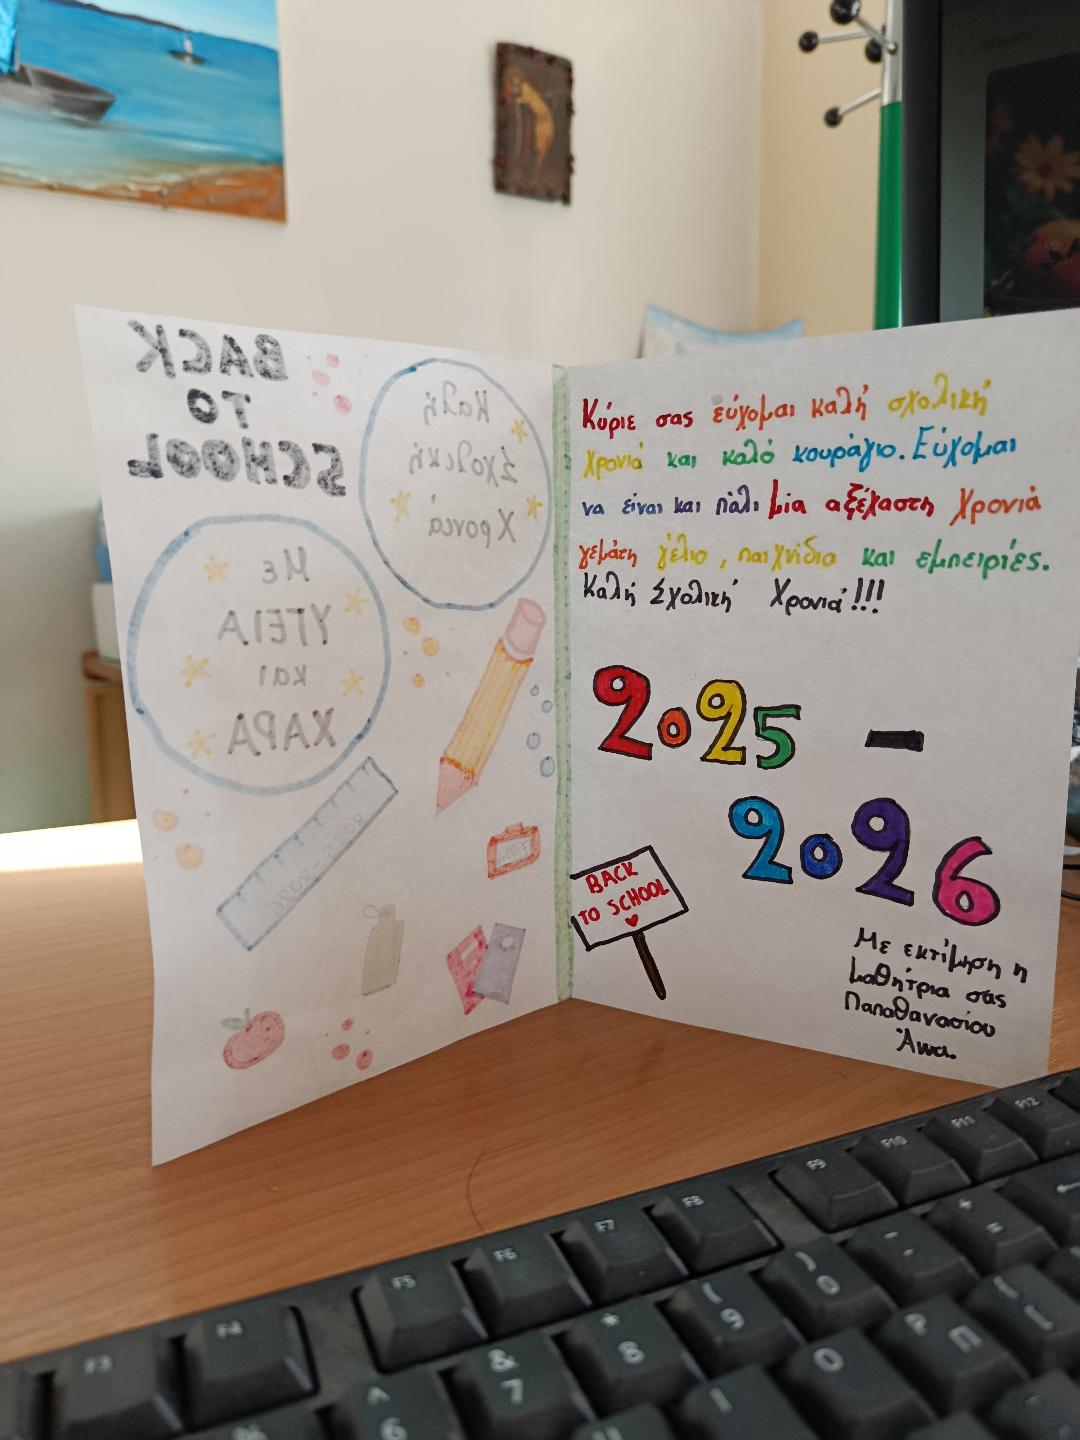 BACK
TO
SCHOOL
Καλή
Σχολική
Χρονιά
Με
ΥΓΕΙΑ
και
ΧΑΡΑ
2025-2026
7:00
Κύριε σας εύχομαι καλή σχολική
χρονιά και καλό κουράγιο. Εύχομαι
να είναι και πάλι μία αξέχαστη χρονιά
γεμάτη γέλιο, παιχνίδια και εμπειρίες.
Καλή Σχολική Χρονιά!!!
2025 -
2026
BACK
TO SCHOOL
Με εκτίμηση η
μαθήτρια σας
Παπαθανασίου
Άννα.
F3
F4
F5
F6
F7
F8
F9
F10
F11
F12
^
6
&
7
*
8
(
9
)
0
+
=